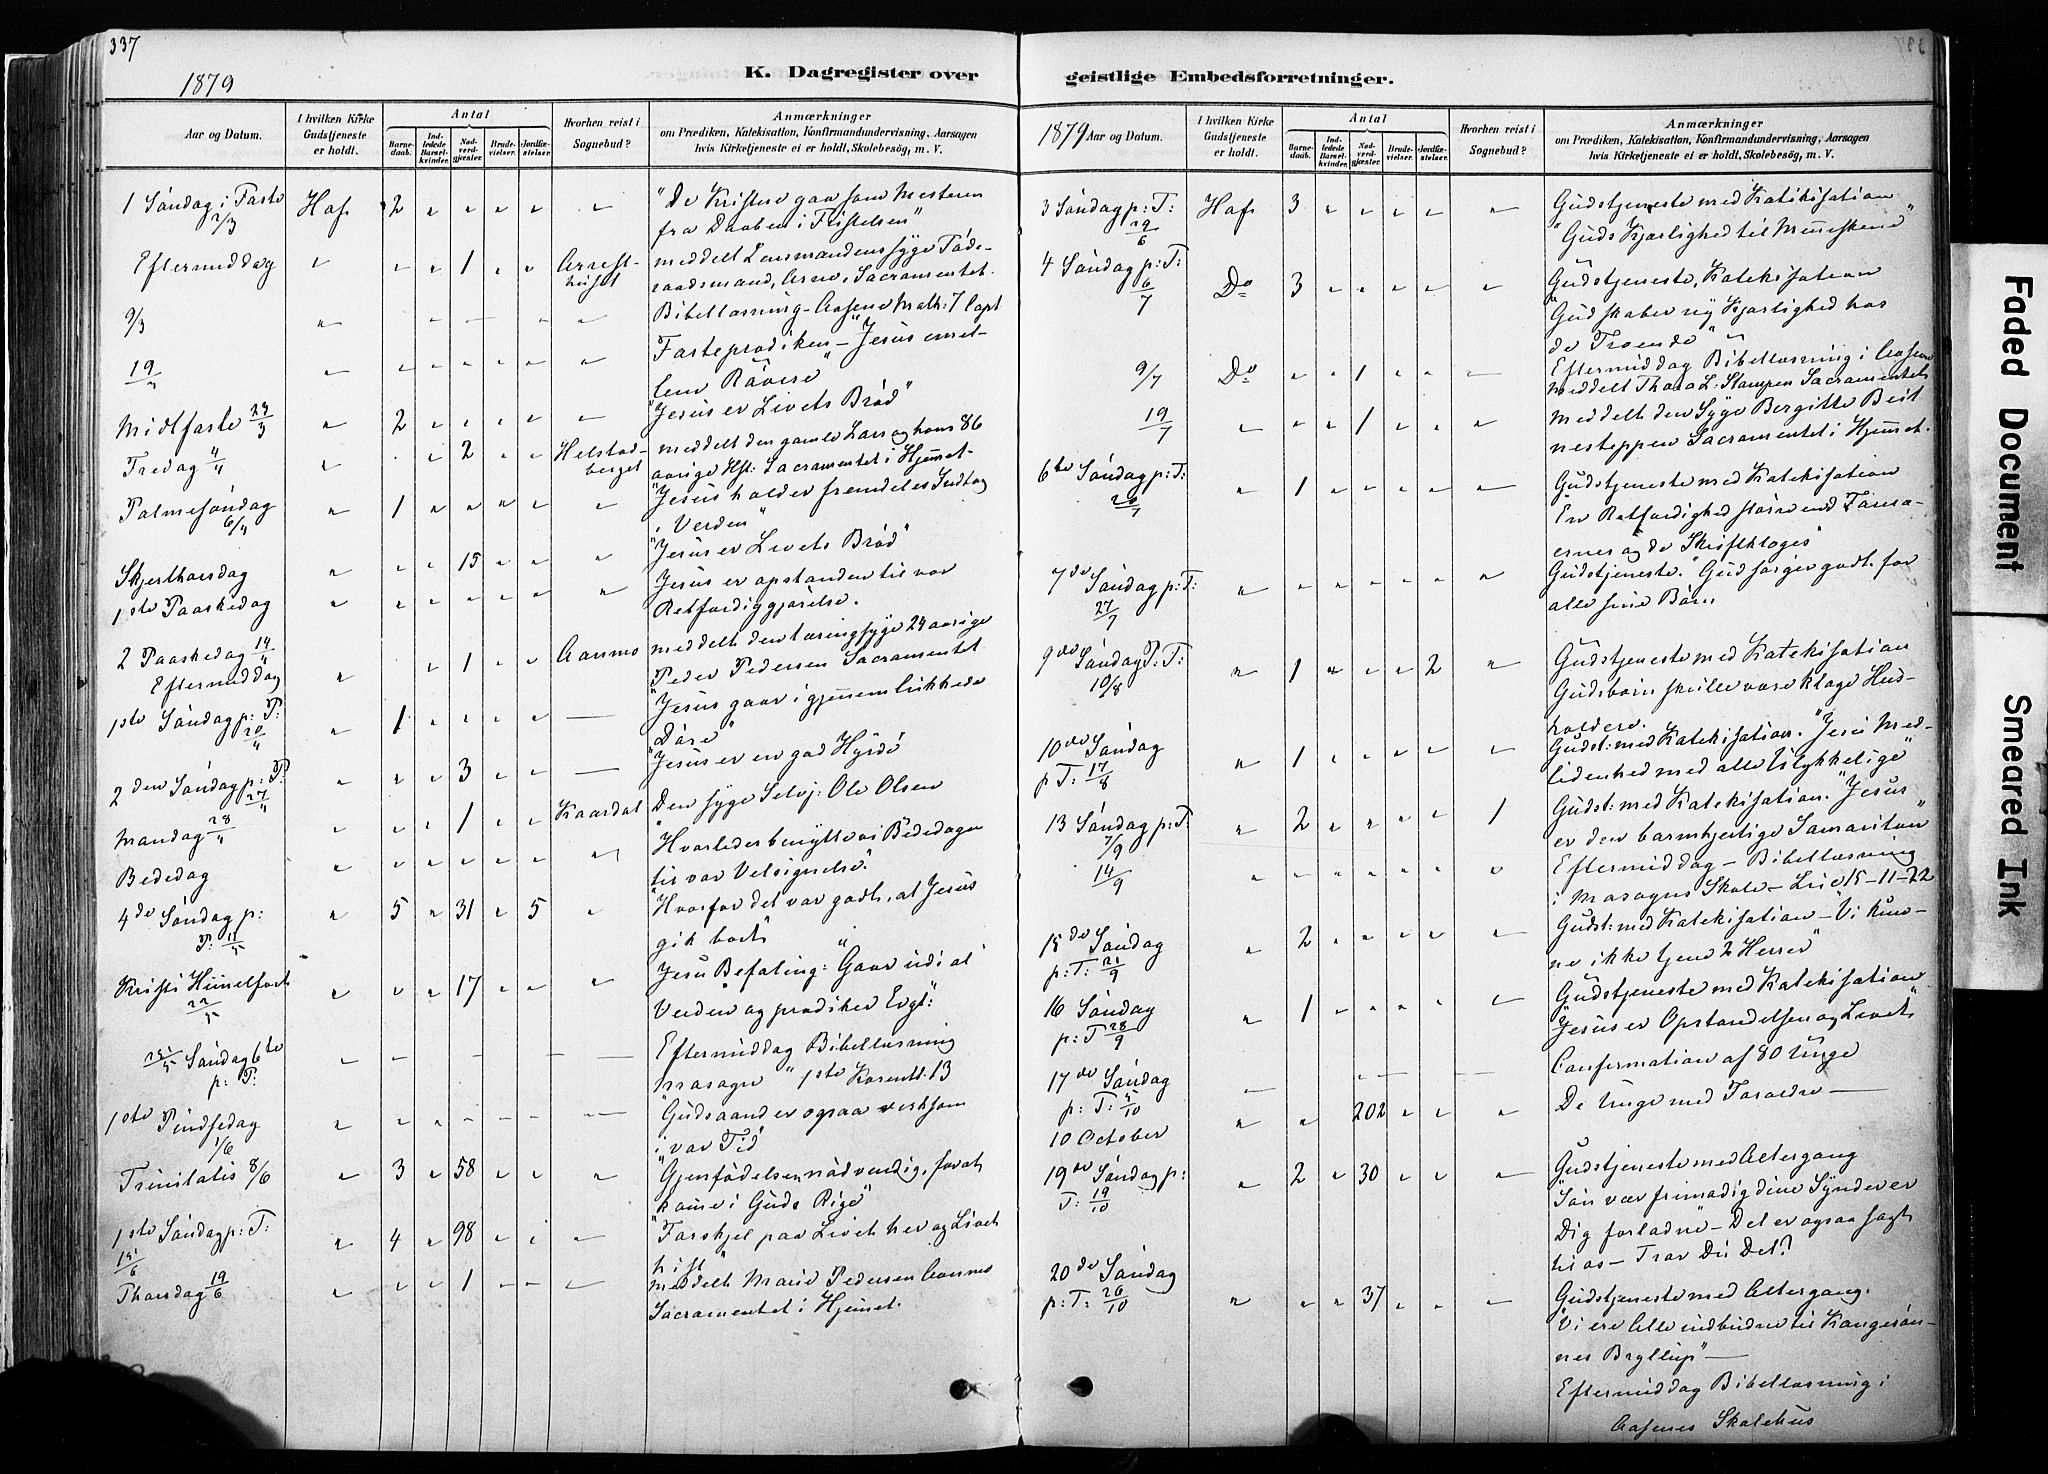 337
1879
K. Dagregister over
Aar og Datum.
I hvilken Kirke
Gudstjeneste
er holdt.
Antal
Barne-
daab.
Ind-
ledede
Barsel-
kvinder.
Nad-
verd-
gjæster.
Brude-
vielser.
Jordfæ-
stelser.
Hvorhen reist i
Sognebud?
Anmærkninger
om Prædiken, Katekisation, Konfirmandundervisning, Aarsagen
hvis Kirketjeneste ei er holdt, Skolebesøg, m. V.
1 Søndag i Faste Hof 2 " " " " " "De Kristne gaa som Mesteren
2/3 fra Daaben i Fristelsen"
Eftermiddag " " " 1 " " Arrest- meddelt Lensmandens syge
huset Sacramentet
9/3 " Bibellæsning - Aasene Math: 7 Capt
19/" " Fasteprædiken - "Jesus
Røvere"
Midtfaste 23/3 " 2 " " " " "Jesus er Livets Brød"
Fredag 4/4 " " " 2 " " Helstad- meddelt den gamle Lars og hans 86
berget aarige Hst: Sacramentet i Hjemmet
Palmesøndag " 1 " " " " " "Jesus holder fremdeles Indtog
6/4 i Verden"
Skjærthorsdag " " " 15 " " " "Jesus er Livets Brød"
1ste Paaskedag " " " " " " " Jesus er opstanden til vor
Retfærdiggjørelse.
2 Paaskedag 14/4 " " 1 " " Aanmo meddelt den tæringsyge 24 aarige
Eftermiddag " Peder Pedersen Sacramentet
1ste Søndag p: P: " 1 " " " " — "Jesus gaar igjennem lukkede
20/4 Døre"
2den Søndag p: P: " " " 3 " " — "Jesus er en god Hyrde"
27/4
Mandag 28/4 " " " 1 " " Kaardal Den syge Selvj: Ole Olsen
Bededag " " " " " " " "Hvorledes benytte vi Bededagen
til vor Velsignelse."
4de Søndag p: " 5 " 31 " 5 " "Hvorfor det var godt, at Jesus
P: 11/5 gik bort"
Kristi Himelfart " " " 17 " " " Jesu Befaling: "Gaar ud i al
22/5 Verden og prædiker Evgl":
25/5 Søndag 6te — — — — — — Eftermiddag Bibellæsning
p: P: Masagn "1ste Korenth. 13
1ste Pindsedag " " " " " " — "Guds aand er ogsaa virksom
1/6 i vor Tid"
Trinitatis 8/6 " 3 " 58 " " " "Gjenfødelsen nødvendig, for at
komme i Guds Rige"
1ste Søndag p: T: " 4 " 98 " " " "Forskjel paa Livet her og Livet
15/6 hist"
Thorsdag 19/6 " " " 1 " " — meddelt Marie Pedersen Aanmo
Sacramentet i Hjemmet.
geistlige Embedsforretninger.
1879 Aar og Datum.
I hvilken Kirke
Gudstjeneste
er holdt.
Antal
Barne-
daab.
Ind-
ledede
Barsel-
kvinder.
Nad-
verd-
gjæster.
Brude-
vielser.
Jordfæ-
stelser.
Hvorhen reist i
Sognebud?
Anmærkninger
om Prædiken, Katekisation, Konfirmandundervisning, Aarsagen
hvis Kirketjeneste ei er holdt, Skolebesøg, m. V.
3 Søndag p: T: Hof 3 " " " " " Gudstjeneste med Katekisation
29/6 "Guds Kjærlighed til Menneskene"
4 Søndag p: T: Do 3 " " " " " Gudstjeneste, Katekisation
6/7 "Gud skaber ny Kjærlighed hos
de Troende"
Eftermiddag Bibellæsning i Aasene
9/7 Do " " 1 " " — meddelt Thora L. Stampen Sacramentet
19/7 " " " 1 " " " meddelt den Syge Bergitte Beit
nesteppen Sacramentet i Hjemmet.
6te Søndag p: T: " 1 " " " " — Gudstjeneste med Katekisation
20/7 "En Retfærdighed større end Farisæ-
ernes og de Skriftkloges"
7de Søndag p: T: " " " " " " " Gudstjeneste. "Gud sørger godt for
27/7 alle sine Børn.
9de Søndag P: T: " 1 " " " 2 " Gudstjeneste med Katekisation
10/8 Gudsbørn skulle være kloge Hus-
holdere.
10de Søndag " 1 " " " " " Gudst: med Katekisation. "Jesu Med-
p T: 17/8 lidenhed med alle Ulykkelige"
13 Søndag p: T: " 2 " " " " 1 Gudst: med Katekisation. "Jesus
7/9 er den barmhjertige Samaritan"
14/9 " " " " " " " Eftermiddag - Bibellæsning
i Masagns Skole - Luc 15-11-22
15de Søndag " 2 " " " " — Gudst: med Katekisation - "Vi kun-
p: T: 21/9 ne ikke tjene 2 Herrer"
16 Søndag " 1 " " " " — Gudstjeneste med Katekisation
p: T 28/9 "Jesus er Opstandelsen og Livet"
17de Søndag — Confirmation af 80 Unge
p: T: 5/10 " " 202 " " " De Unge med Forældre —
10 October
19de Søndag p: " 2 " 30 " " " Gudstjeneste med Altergang
T: 19/10 "Søn vær frimodig dine Synder er
Dig forladne - Det er ogsaa sagt
til os - Tror Du Det?
20de Søndag
p: T: 26/10 " " " 37 " " — Gudstjeneste med Altergang.
"Vi ere Alle indbudne til Kongesøn-
nes Bryllup" —
Eftermiddag Bibellæsning i
Aasenes Skolehus
Faded Document
Smeared Ink